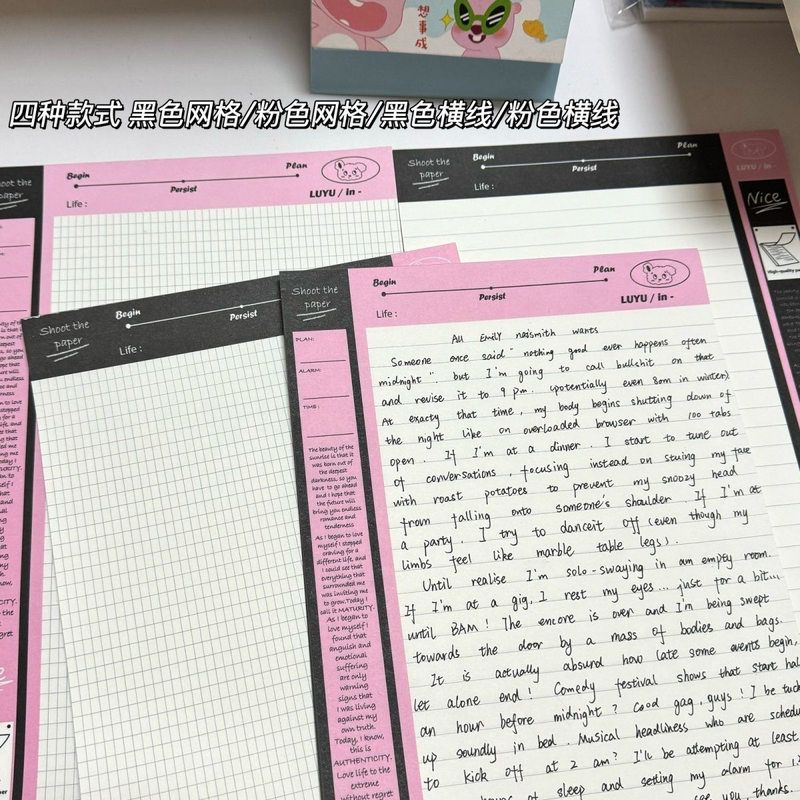 想事成
四种款式 黑色网格/粉色网格/黑色横线/粉色横线
Shoot the
paper
Begin
Plan
Persist
LUYU / in -
Life :
Shoot the
paper
Begin
Plan
Persist
Life :
LUYU / in -
Nice
High-quality
Shoot the
paper
Begin
Persist
Life :
Shoot the
paper
Begin
Plan
Persist
LUYU / in -
Life :
PLAN:
ALARM:
TIME :
The beauty of the
sunrise is that it
was born out of
the deepest
darkness, so you
have to go ahead
and I hope that
the future will
bring you endless
romance and
tenderness
As I began to love
myself I stopped
craving for a
different life, and
I could see that
everything that
surrounded me
was inviting me
to grow.Today I
call it MATURITY.
As I began to
love myself I
found that
anguish and
emotional
suffering
are only
warning
signs that
I was living
against my
own truth.
Today, I know,
this is
AUTHENTICITY.
Love life to the
extreme
without regret
All Emily naismith wants
Someone once said " nothing good ever happens often
midnight " but I'm going to call bullshit on that
and revise it to 9 pm. (potentially even 8om in winter)
At exacty that time, my body begins shutting down of
the night like on overloaded browser with 100 tabs
open. If I'm at a dinner. I start to tune out
of conversations, focusing instead on stuing my face
with roast potatoes to prevent my snoozy head
from falling onto someone's shoulder If I'm at
a party. I try to danceit off (even though my
limbs feel like marble table legs).
Until realise I'm solo-swaying in am empty room.
If I'm at a gig. I rest my eyes... just for a bit...
until BAM! The encore is over and I'm being swept
towards the door by a mass of bodies and bags.
It is actually absurd how late some events begin,
let alone end! Comedy festival shows that start hal
an hour before midnight? Good gag, guys! I be tuck
up soundly in bed. Musical headliness who are schedu
to kick off at 2 am? I'll be attempting at least
of sleep and setting my alarm for
see you, thanks.